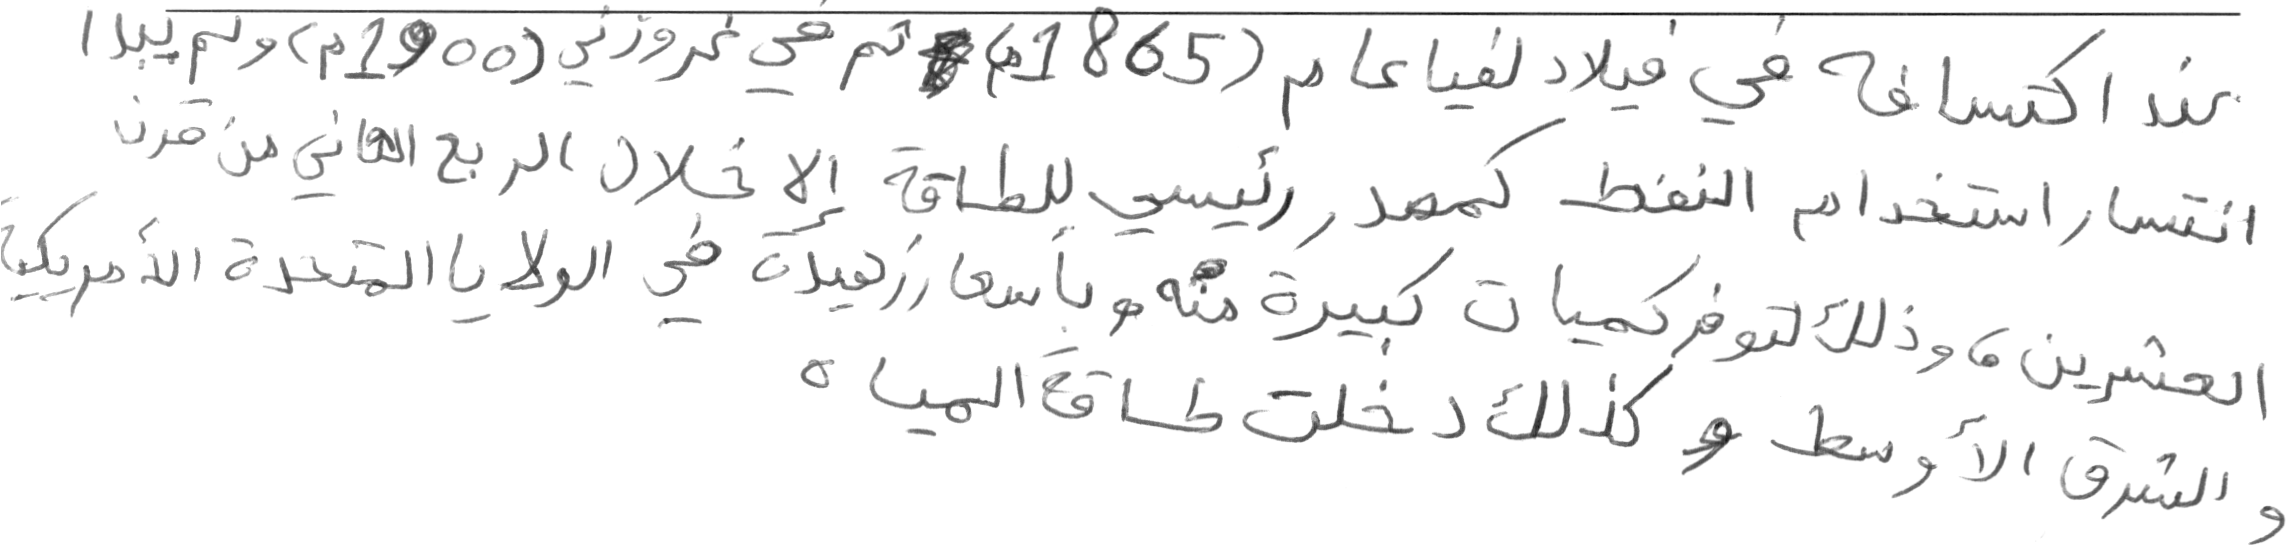 عند اكتشافه في فيلادلفيا عام (1865م) ثم في غروزني (1900م) ولم يبدا
انتشار استخدام النفط كمصدر رئيسي للطاقة إلا خلال الربع الثاني من قرن
العشرين، وذلك لتوفر كميات كبيرة منه وبأسعار زهيدة في الولايا المتحدة الأمريكية
والشرق الأوسط وكذلك دخلت طاقة المياه